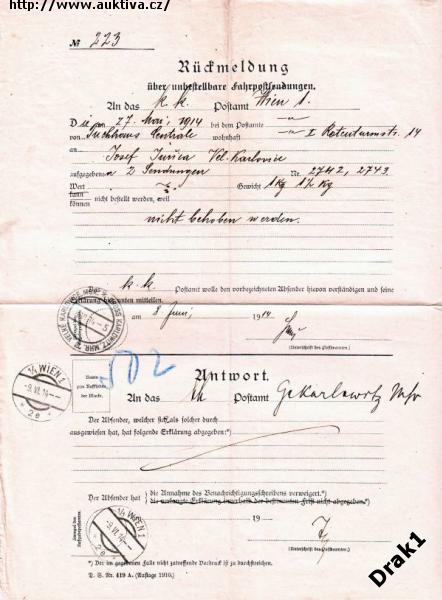 http://www.auktiva.cz/
№ 223
Rückmeldung
über unbestellbare Fahrpostsendungen.
An das k. k. Postamt Wien 1.
Die am 27. Mai 1914 bei dem Postamte
von Tuchhaus Centrale wohnhaft I. Rotenturmstr. 14
an Josef Juřica Vel. Karlovice
aufgegebenen 2 Sendungen Nr. 2742, 2743
Wert Gewicht 1 Kg 1½ Kg
kann
können nicht bestellt werden, weil
nicht behoben werden.
Das k. k. Postamt wolle den vorbezeichneten Absender hievon verständigen und seine
Erklärung hierunten mitteilen.
am 8 Juni 1914
(Unterschrift des Postbeamten.)
502
Antwort.
Raum
zum Aufkleben
der Marke.
An das Postamt Gr Karlowitz
Der Absender, welcher sich als solcher durch
ausgewiesen hat, hat folgende Erklärung abgegeben:*)
Der Absender hat
die Annahme des Benachrichtigungsschreibens verweigert.*)
die verlangte Erklärung innerhalb der bestimmten Frist nicht abgegeben.*)
19
(Unterschrift des Postbeamten.)
*) Der im gegebenen Falle nicht zutreffende Vordruck ist zu durchstreichen.
D. S. Nr. 419 A. (Auflage 1910.)
1/1 WIEN 1
-9.VI.14
* 2e *
1/1 WIEN 1
-9.VI.14
* 2e *
Drak1